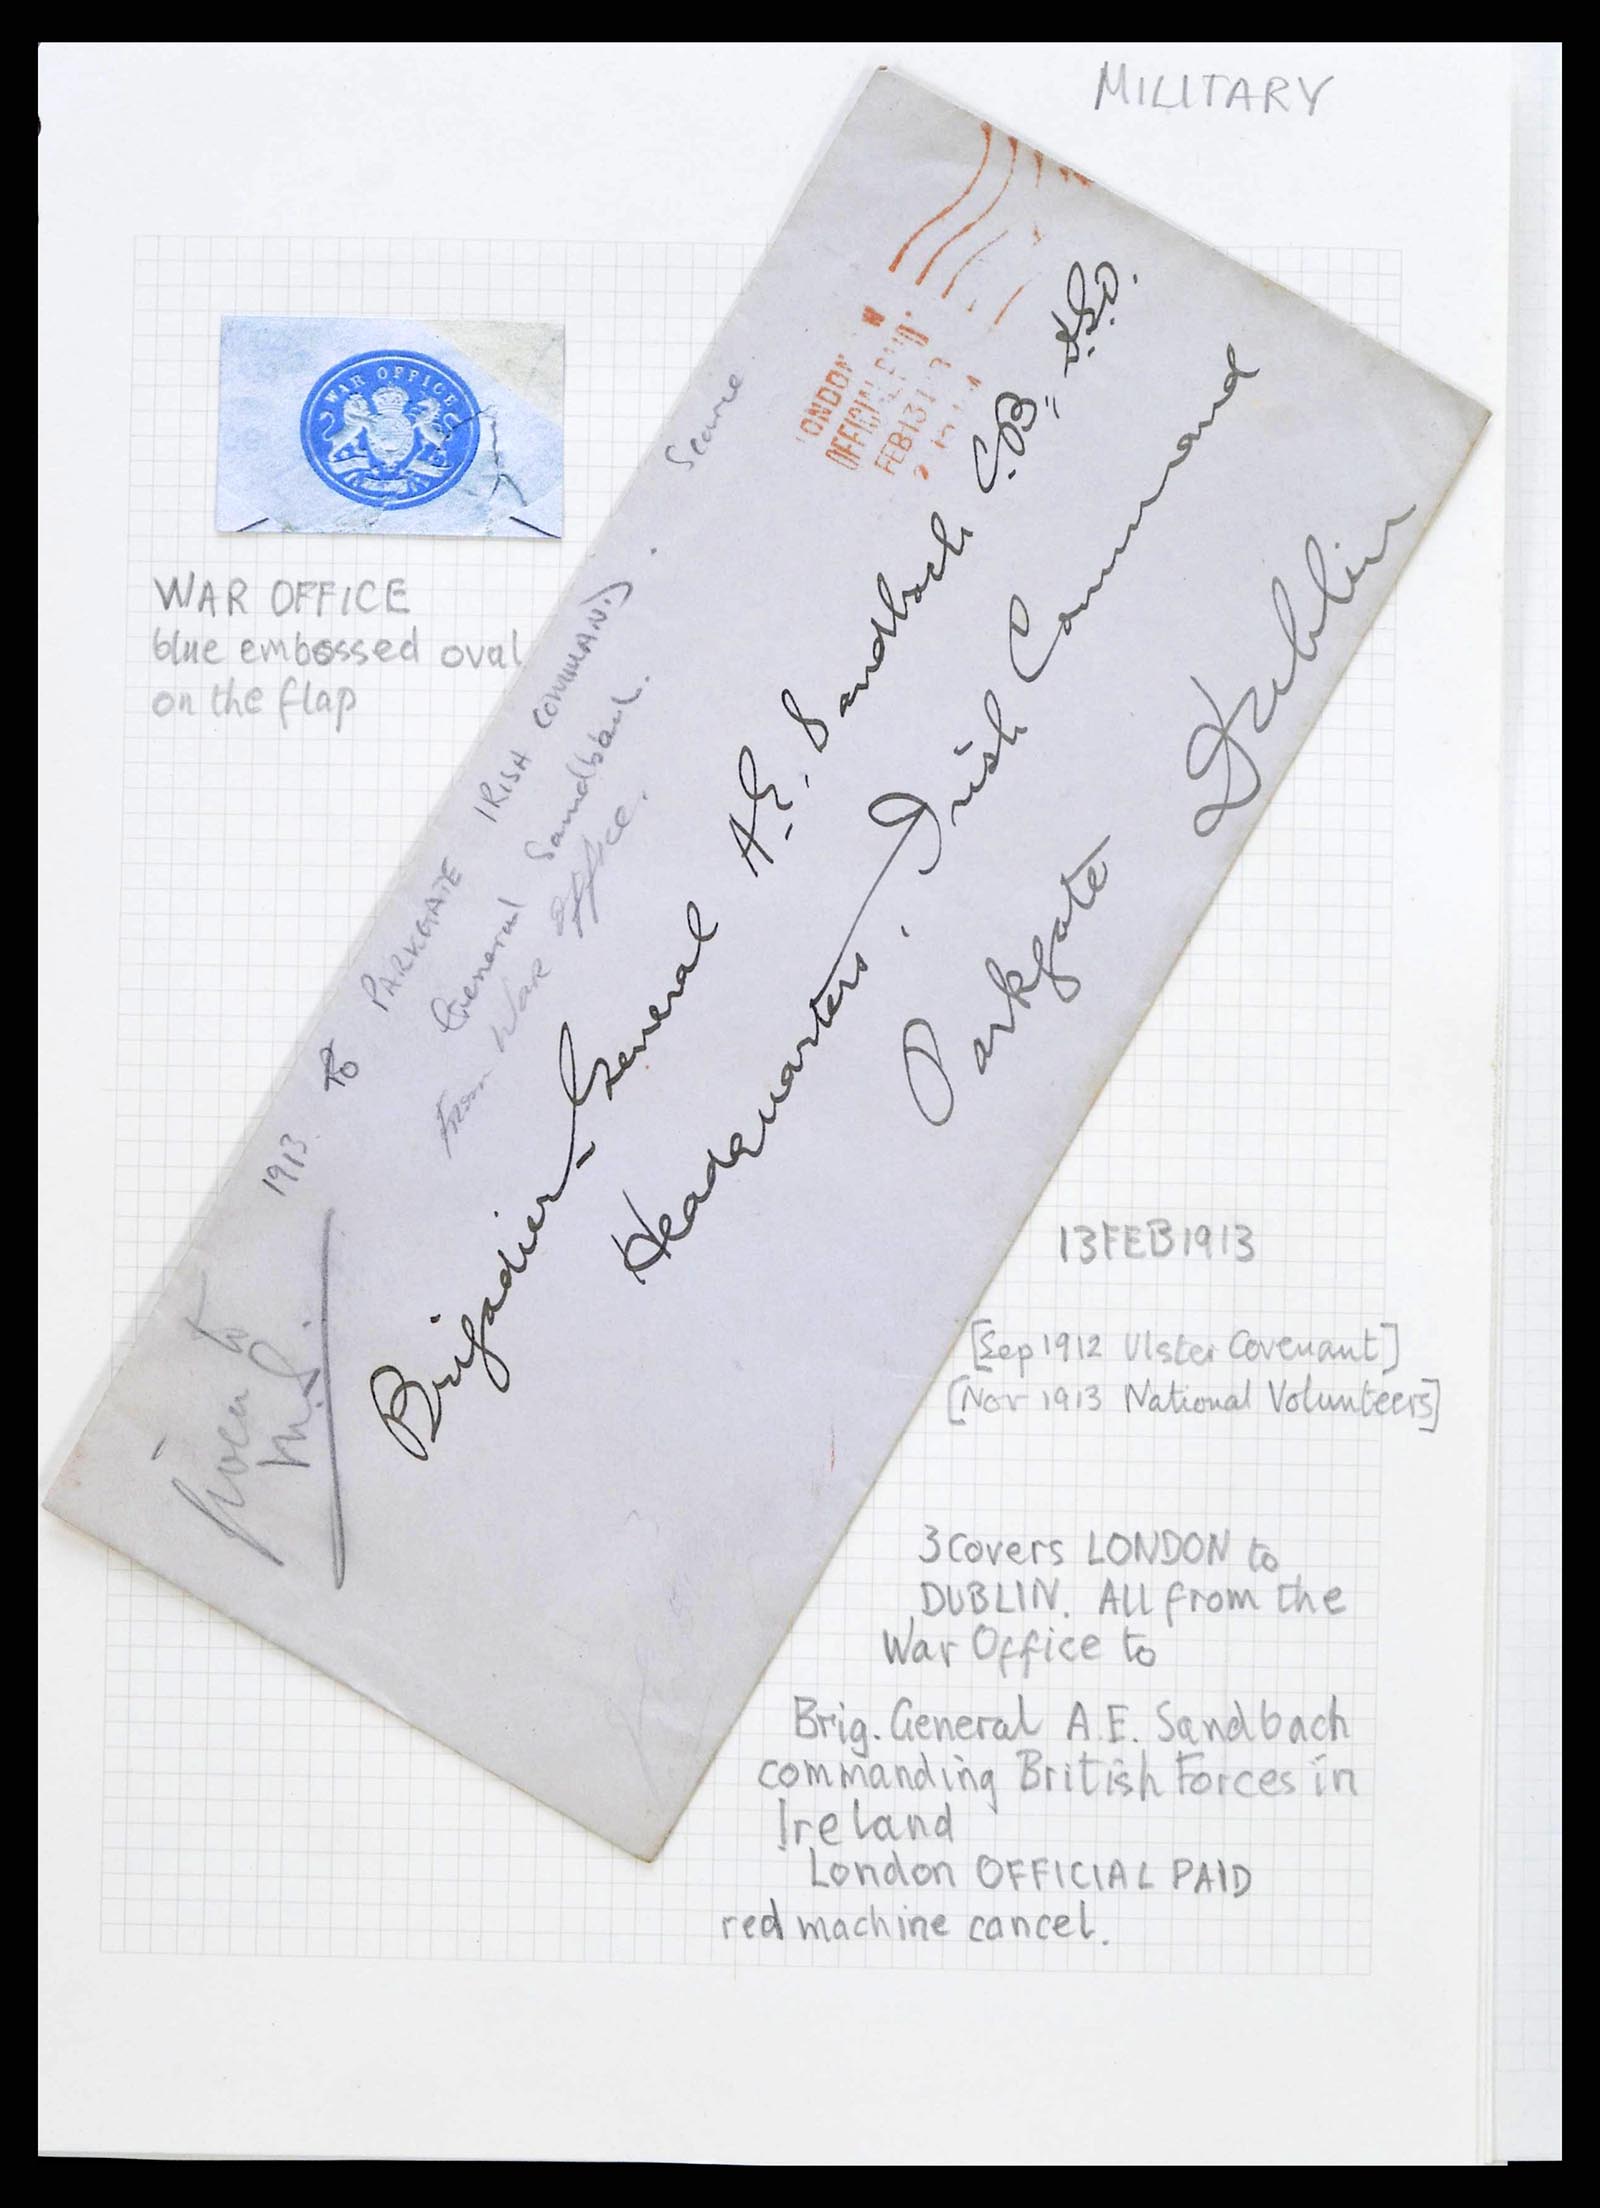 MILITARY
WAR OFFICE
WAR OFFICE
blue embossed oval
on the flap
LONDON W
OFFICIAL PAID
FEB 13 13
1913. to PARKGATE IRISH COMMAND. Scarce
General Sandbach.
from War Office.
Brigadier-General A.E. Sandbach C.B. D.S.O.
Headquarters, Irish Command
Parkgate
Dublin
13FEB1913
[Sep 1912 Ulster Covenant]
[Nov 1913 National Volunteers]
3 covers LONDON to
DUBLIN. All from the
War Office to
Brig. General A.E. Sandbach
commanding British Forces in
Ireland
London OFFICIAL PAID
red machine cancel.